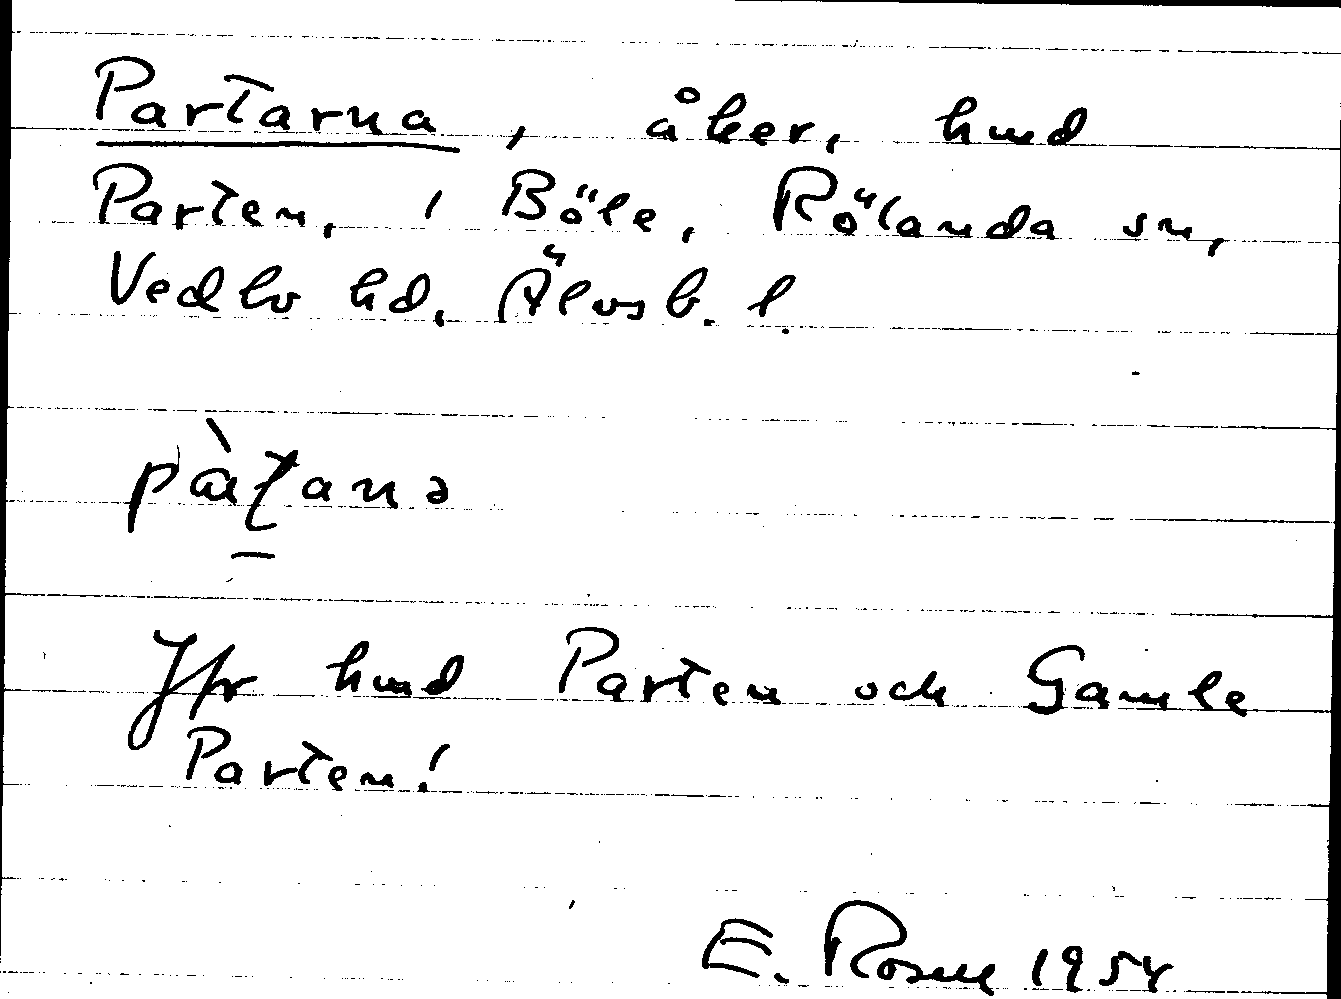 Partarna, åker, hmd
Parten, i Böle, Rölanda sn,
Vedbo hd, Älvsb. l.
pàʈanə
Jfr hmd Parten och Gamle
Parten!
E. Rosell 1954